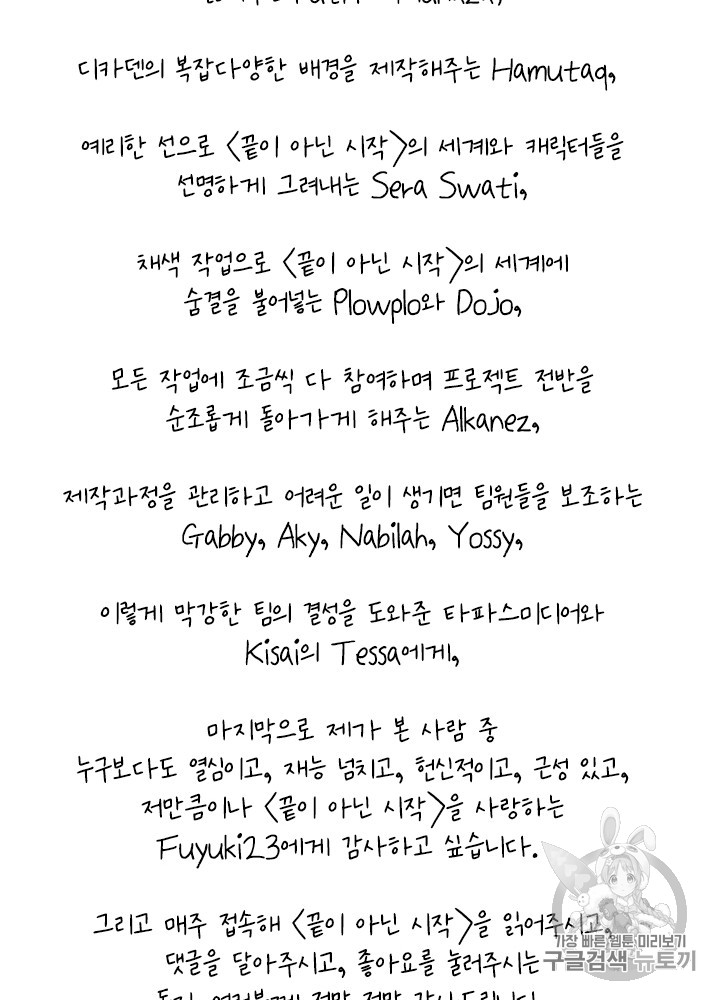 디카덴의 복잡다양한 배경을 제작해주는 Hamutaq,
예리한 선으로 〈끝이 아닌 시작〉의 세계와 캐릭터들을
선명하게 그려내는 Sera Swati,
채색 작업으로 〈끝이 아닌 시작〉의 세계에
숨결을 불어넣는 Plowplo와 Dojo,
모든 작업에 조금씩 다 참여하며 프로젝트 전반을
순조롭게 돌아가게 해주는 Alkanez,
제작과정을 관리하고 어려운 일이 생기면 팀원들을 보조하는
Gabby, Aky, Nabilah, Yossy,
이렇게 막강한 팀의 결성을 도와준 타파스미디어와
Kisai의 Tessa에게,
마지막으로 제가 본 사람 중
누구보다도 열심이고, 재능 넘치고, 헌신적이고, 근성 있고,
저만큼이나 〈끝이 아닌 시작〉을 사랑하는
Fuyuki23에게 감사하고 싶습니다.
그리고 매주 접속해 〈끝이 아닌 시작〉을 읽어주시고,
댓글을 달아주시고, 좋아요를 눌러주시는
가장 빠른 웹툰 미리보기
구글검색 뉴토끼